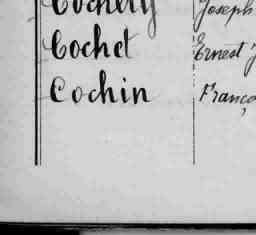 Cochery Joseph
Cochet Ernest J
Cochin Franço